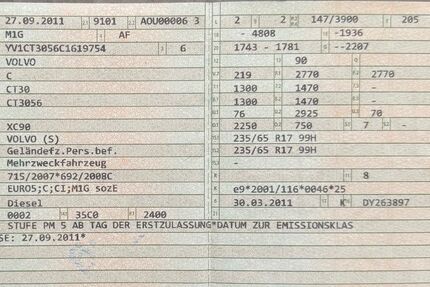 27.09.2011 9101 AOU00006 3
M1G AF
YV1CT3056C1619754 3 6
VOLVO
C
CT30
CT3056
XC90
VOLVO (S)
Geländefz.Pers.bef.
Mehrzweckfahrzeug
715/2007*692/2008C
EURO5;C;CI;M1G sozE
Diesel
0002 35C0 2400
STUFE PM 5 AB TAG DER ERSTZULASSUNG*DATUM ZUR EMISSIONSKLAS
SE: 27.09.2011*
L 2 9 2 147/3900 T 205
- 4808 -1936
1743 - 1781 --2207
90
219 2770 2770
1300 1470 -
1300 1470 -
76 2925 70
2250 750 7 -
235/65 R17 99H
235/65 R17 99H
-
K 8
e9*2001/116*0046*25
30.03.2011 K DY263897